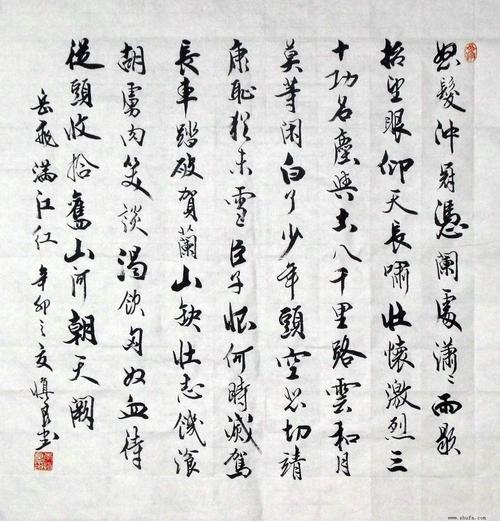 怒髮沖冠憑闌處瀟〻雨歇
抬望眼仰天長嘯壯懷激烈三
十功名塵與土八千里路雲和月
莫等闲白了少年頭空悲切靖
康恥猶未雪臣子恨何時滅駕
長車踏破賀蘭山缺壯志饑飡
胡虜肉笑談渴飲匈奴血待
從頭收拾舊山河朝天闕
岳飛滿江红 辛卯之夏慎书
www.shufa.com